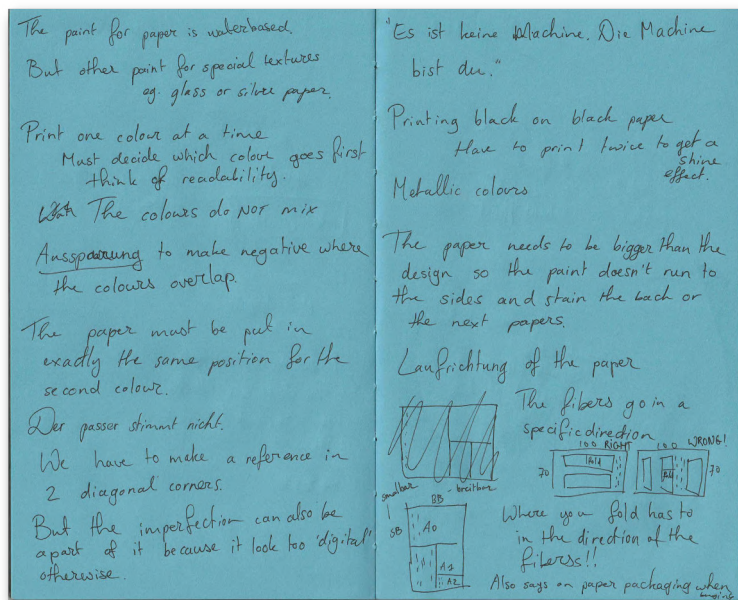 The paint for paper is waterbased.
But other paint for special textures
eg. glass or silver paper.
Print one colour at a time
Must decide which colour goes first
think of readability.
The colours do NOT mix
Aussparung to make negative where
the colours overlap.
The paper must be put in
exactly the same position for the
second colour.
Der passer stimmt nicht.
We have to make a reference in
2 diagonal corners.
But the imperfection can also be
a part of it because it look too 'digital'
otherwise.
"Es ist keine Machine. Die Machine
bist du."
Printing black on black paper
Have to print twice to get a
shine
effect.
Metallic colours
The paper needs to be bigger than the
design so the paint doesn't run to
the sides and stain the back or
the next papers.
Laufrichtung of the paper
The fibers go in a
specific direction
100 RIGHT
100 WRONG!
70
70
smalbar
BB
- breitbar
SB
A0
A1
A2
Where you fold has to
in the direction of the
fibers!!
Also says on paper packaging when